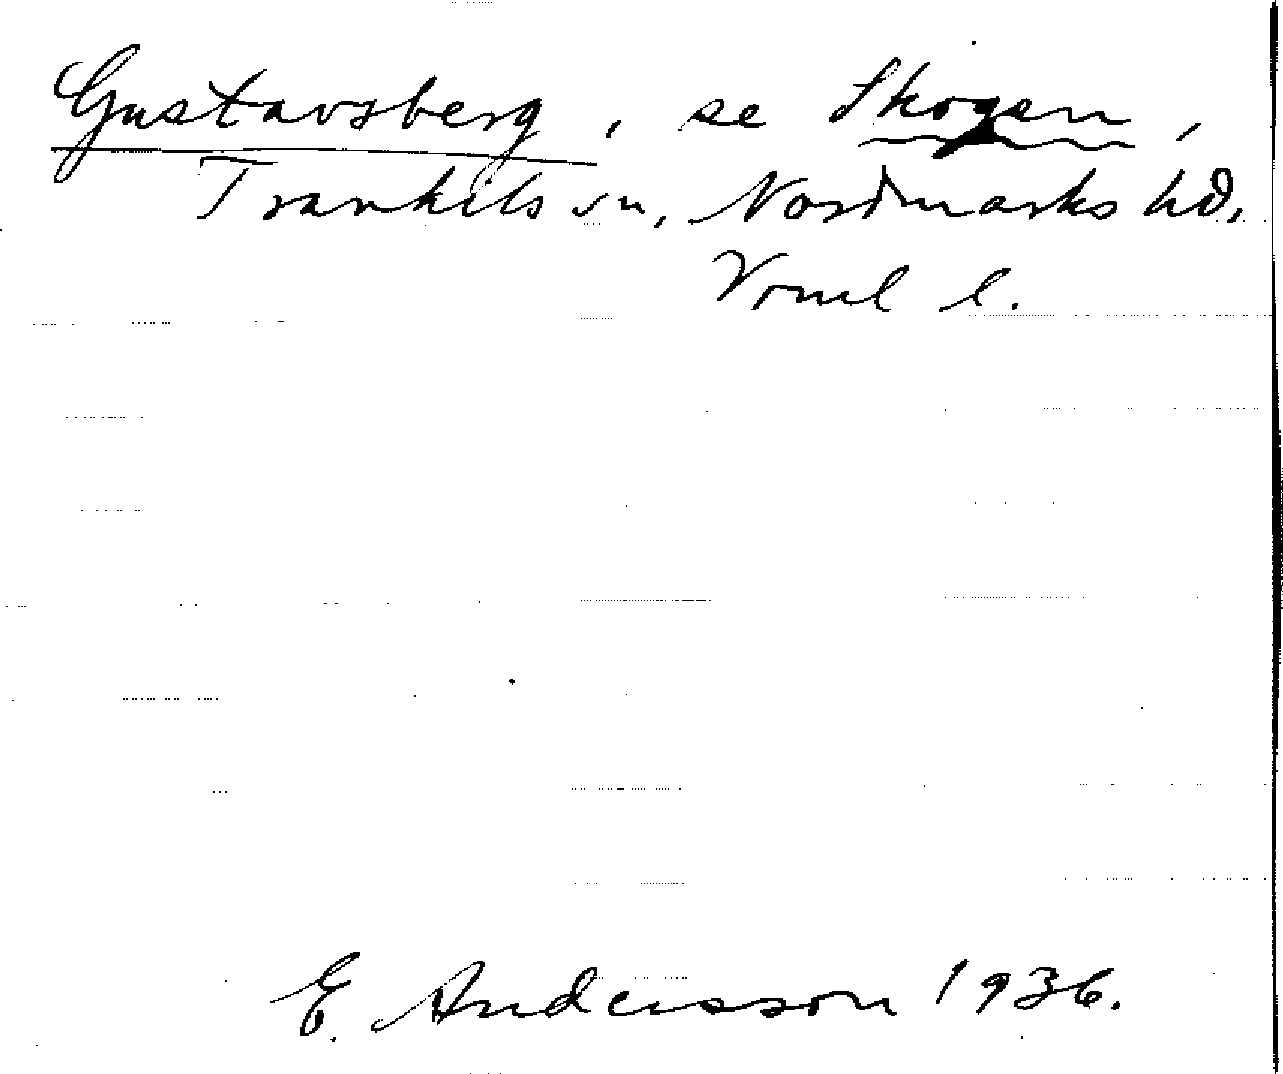 Gustavsberg, se Skogen,
Trankils sn, Nordmarks hd,
Vrml l.
E. Andersson 1936.